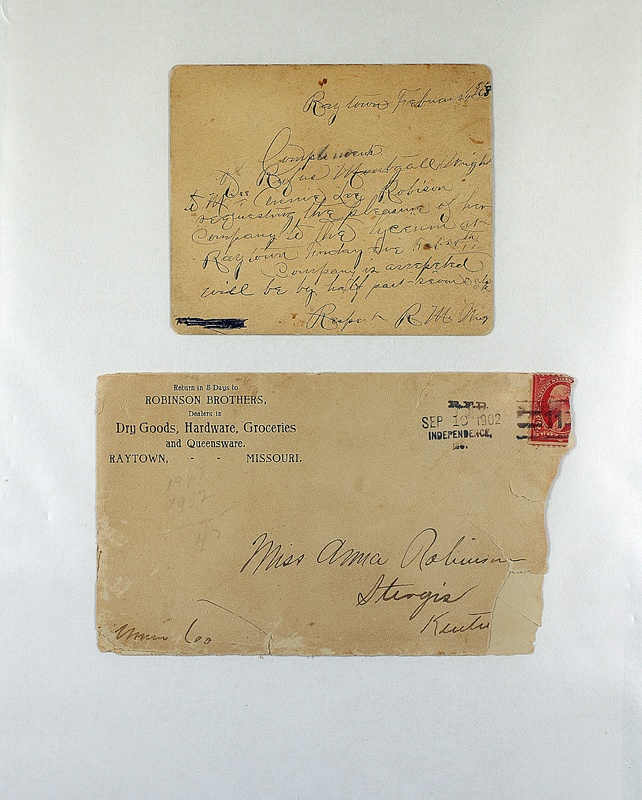 Raytown
Compliments
of Rufus Montgall Wright
to Miss Minnie Lee Robison
requesting the pleasure of her
Company to the lyceum at
Raytown
Company is accepted
will be by half past seven
R M
Return in 5 Days to
ROBINSON BROTHERS,
Dealers in
Dry Goods, Hardware, Groceries
and Queensware.
RAYTOWN, - - MISSOURI.
R.F.D.
SEP 10 1902
INDEPENDENCE,
MO.
1902
45
Miss Anna Robinson
Sturgis
Kentu
Union Co